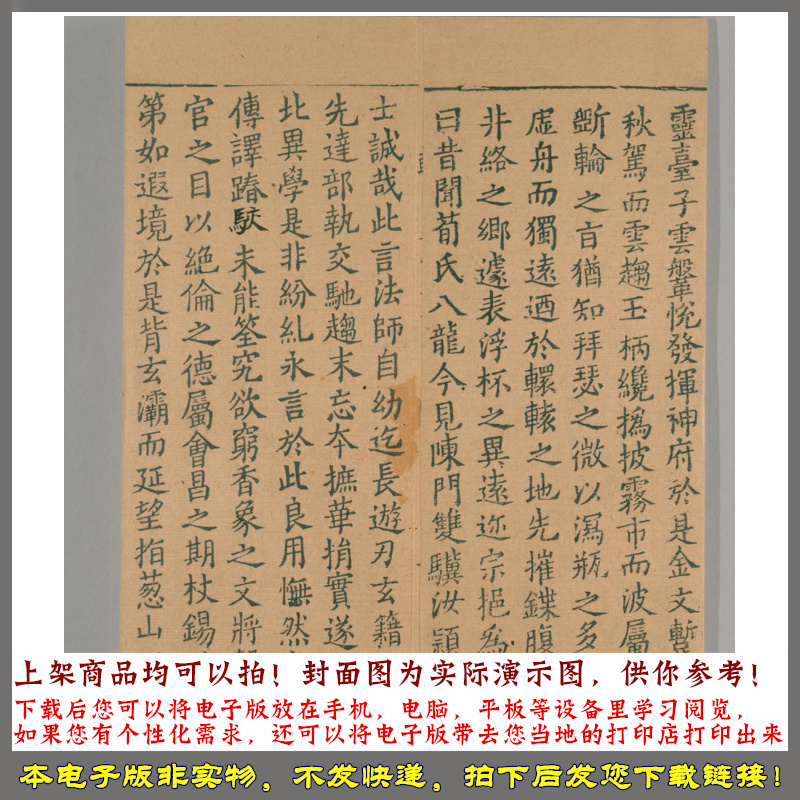 靈臺子雲鞶悅發揮神府於是金文暫
秋駕而雲趨玉柄纔撝披霧市而波屬
斲輪之旨猶知拜瑟之微以瀉瓶之多
虛舟而獨遠迺於轘轅之地先摧鍱腹
井絡之鄉遽表浮杯之異遠迩宗挹爲
曰昔聞荀氏八龍今見陳門雙驥汝潁
士誠哉此言法師自幼迄長遊刃玄籍
先達部執交馳趨末忘夲摭華捐實遂
北異學是非紛糺永言於此良用憮然
傳譯踳駮未能筌究欲窮香象之文將
官之目以絶倫之德屬會昌之期杖錫
第如遐境於是背玄灞而延望指葱山
上架商品均可以拍！封面图为实际演示图，供你参考！
下载后您可以将电子版放在手机，电脑，平板等设备里学习阅览，
如果您有个性化需求，还可以将电子版带去您当地的打印店打印出来
本电子版非实物，不发快递，拍下后发您下载链接！